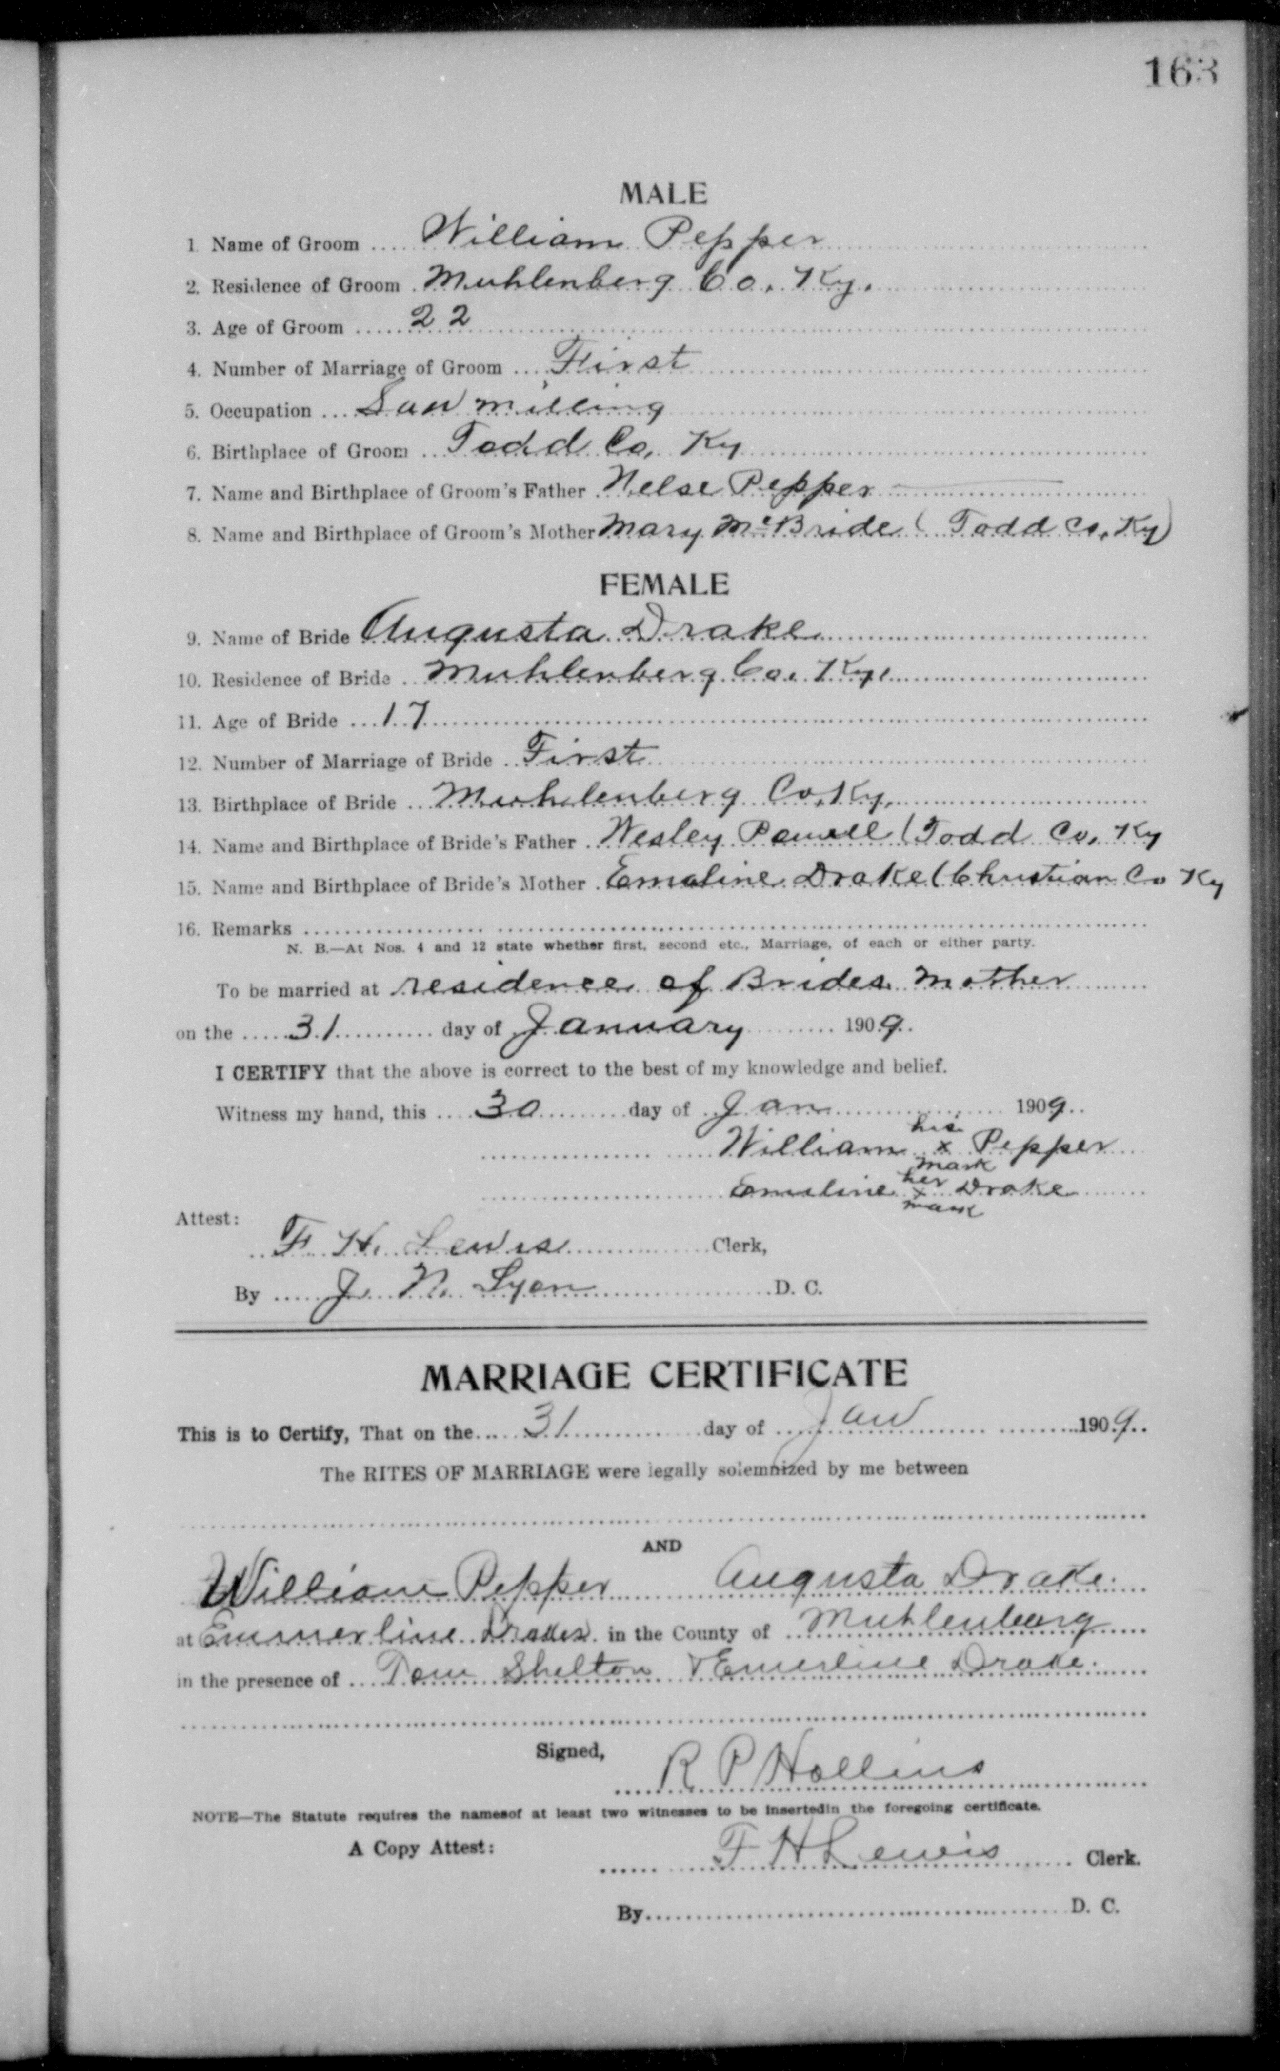 163
MALE
1. Name of Groom .... William Pepper
2. Residence of Groom . Muhlenberg Co. Ky.
3. Age of Groom ...... 22
4. Number of Marriage of Groom .... First
5. Occupation .... Saw milling
6. Birthplace of Groom .. Todd Co. Ky
7. Name and Birthplace of Groom's Father . Nelse Pepper
8. Name and Birthplace of Groom's Mother Mary McBride (Todd Co, Ky)
FEMALE
9. Name of Bride Augusta Drake
10. Residence of Bride .. Muhlenberg Co. Ky.
11. Age of Bride ... 17
12. Number of Marriage of Bride .. First
13. Birthplace of Bride .. Muhlenberg Co. Ky.
14. Name and Birthplace of Bride's Father . Wesley Powell (Todd Co. Ky
15. Name and Birthplace of Bride's Mother . Emaline Drake (Christian Co Ky
16. Remarks
N. B.—At Nos. 4 and 12 state whether first, second etc., Marriage, of each or either party.
To be married at residence of Brides Mother
on the ..... 31 .......... day of January ......... 1909.
I CERTIFY that the above is correct to the best of my knowledge and belief.
Witness my hand, this .... 30 ......... day of .. Jan ........ 1909..
his
William x Pepper
mark
her
Emiline x Drake
mark
Attest:
F. H. Lewis ........ Clerk,
By ..... J. N. Lyon ........ D. C.
MARRIAGE CERTIFICATE
This is to Certify, That on the .... 31 ........ day of .... Jan ........ 1909..
The RITES OF MARRIAGE were legally solemnized by me between
AND
William Pepper Augusta Drake.
at Emmerline Drakes. in the County of .. Muhlenberg
in the presence of ... Tom Shelton & Emerline Drake.
Signed,
R P Hollins
NOTE—The Statute requires the namesof at least two witnesses to be insertedin the foregoing certificate.
A Copy Attest:
F H Lewis ...... Clerk.
By ........ D. C.